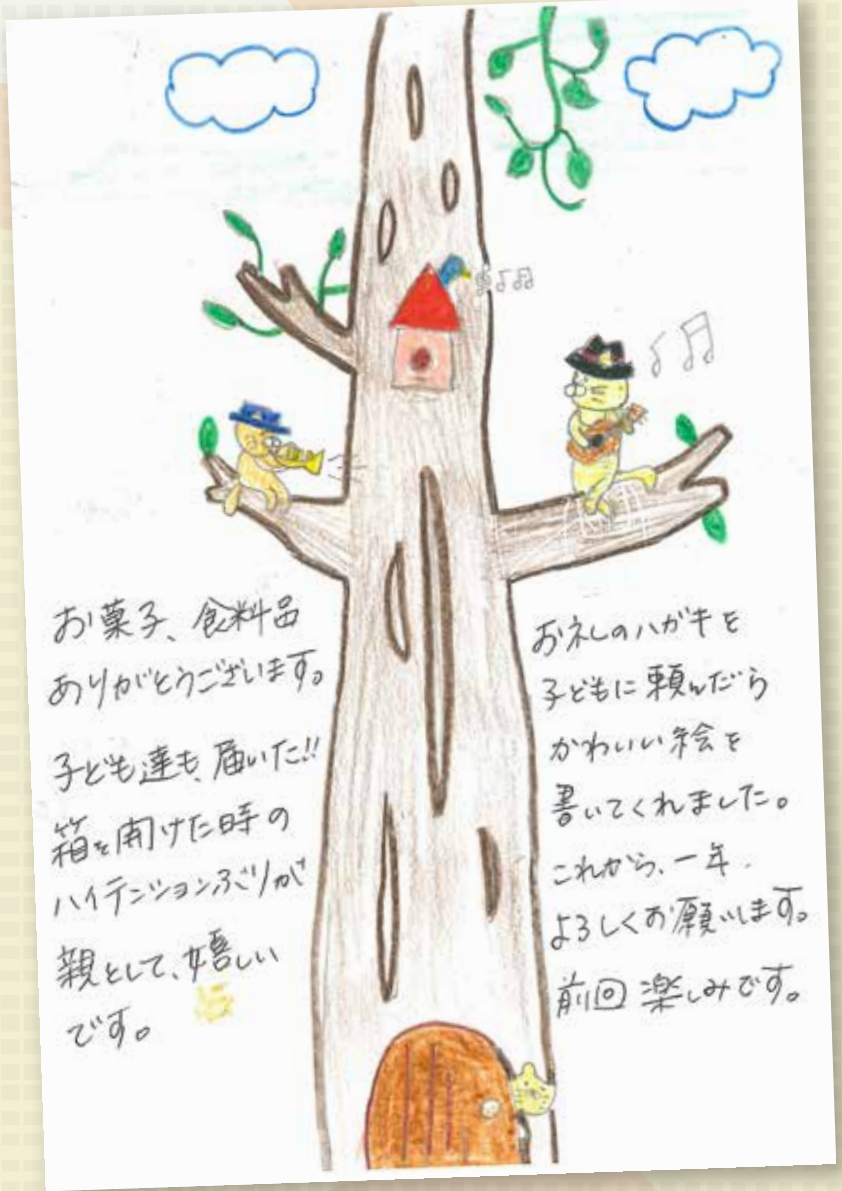 お菓子、食料品
ありがとうございます。
子ども達も、届いた!!
箱を開けた時の
ハイテンションぶりが
親として、嬉しい
です。
お礼のハガキを
子どもに頼んだら
かわいい絵を
書いてくれました。
これから、一年、
よろしくお願いします。
前回 楽しみです。